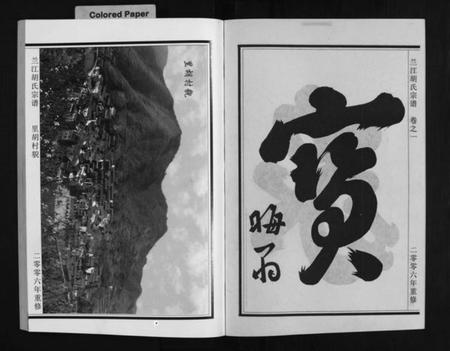 Colored Paper
兰江胡氏宗谱
里胡村貌
二零零六年重修
里胡村貌
寶
晦翁
兰江胡氏宗谱
卷之一
二零零六年重修